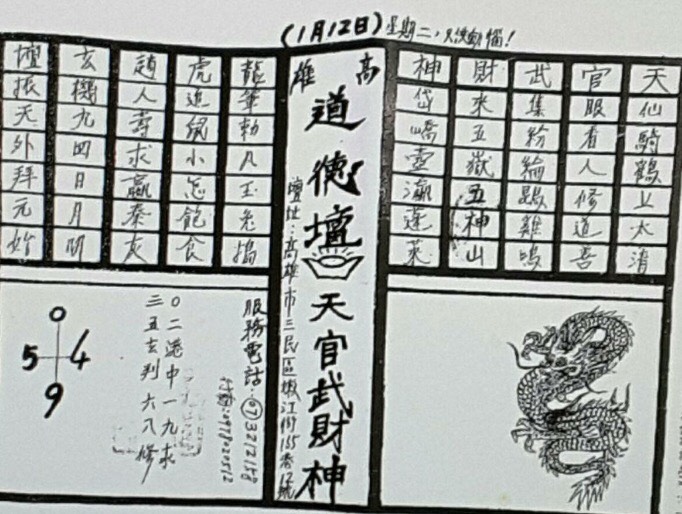 (1月12日)星期二,天使動惱!
高雄
道德壇
天官武財神
壇址:高雄市三民區嫩江街155巷12號
天仙騎鶴上太清
官眼看人修道吾
武集粉綸鼠雞鳴
財來五嶽五神山
神岱嶠壺瀛蓬萊
龍筆勅凡玉兔搗
虎追鼠小怎飽食
趙人壽求嬴秦灰
玄機九四日月明
壇振天外拜元始
服務電話:(07)3212158
0978020512
〇二港中一九求
三五玄判六八修
0
5 4
9